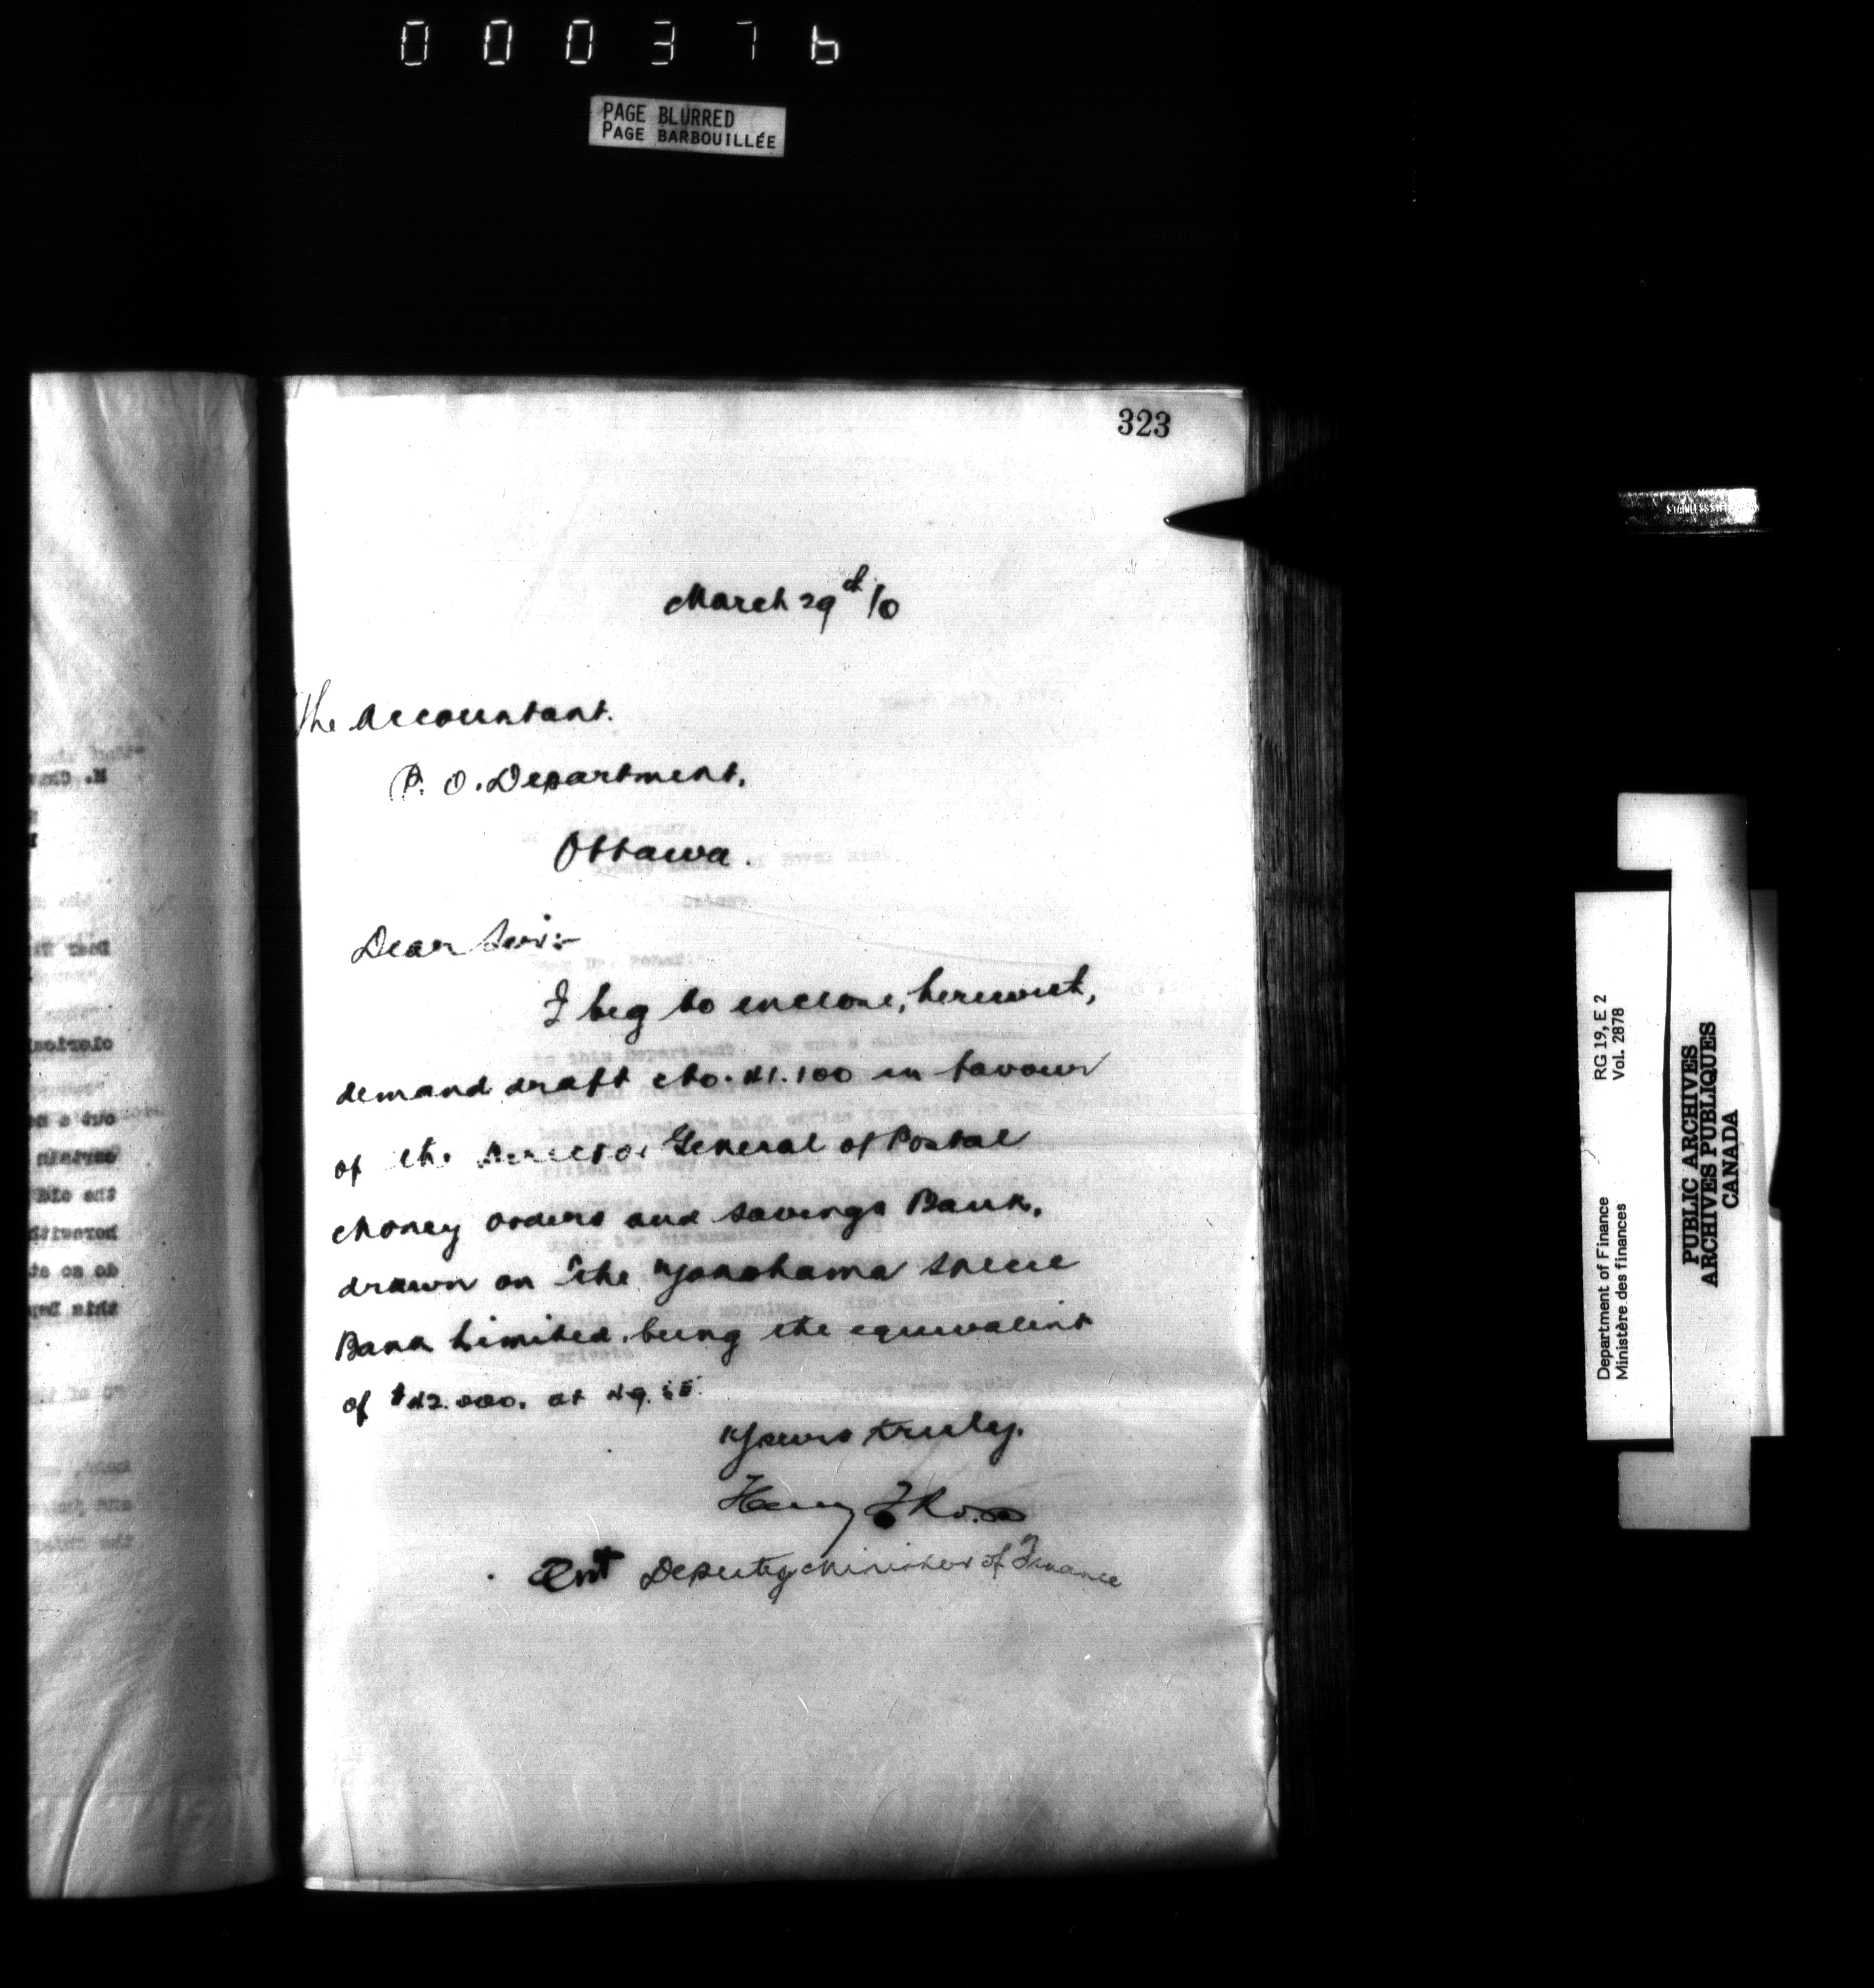 000376
PAGE BLURRED
PAGE BARBOUILLÉE
323
March 29th/10
The Accountant.
P. O. Department,
Ottawa.
Dear Sir:-
I beg to enclose, herewith,
demand draft No. 41.100 in favour
of the Director General of Postal
Money orders and Savings Bank,
drawn on The Yokohama Specie
Bank Limited, being the equivalent
of at
Yours truly.
Henry T Ross
Deputy Minister of Finance
Department of Finance RG 19, E 2
Ministère des finances Vol. 2878
PUBLIC ARCHIVES
ARCHIVES PUBLIQUES
CANADA